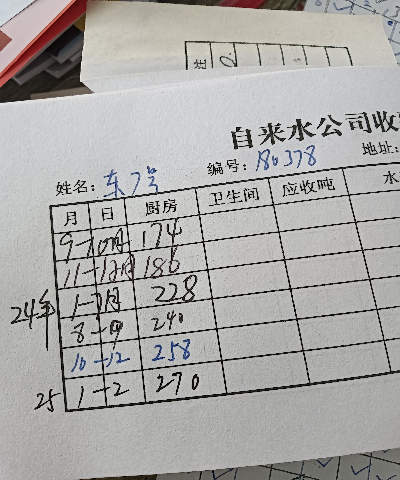 姓
2.
自来水公司收
姓名: 东7号 编号: 180378 地址:
月 日 厨房 卫生间 应收吨 水
9-10月 174
11-12月 186
24年 1-7月 228
8-9 240
10-12 258
25 1-2 270